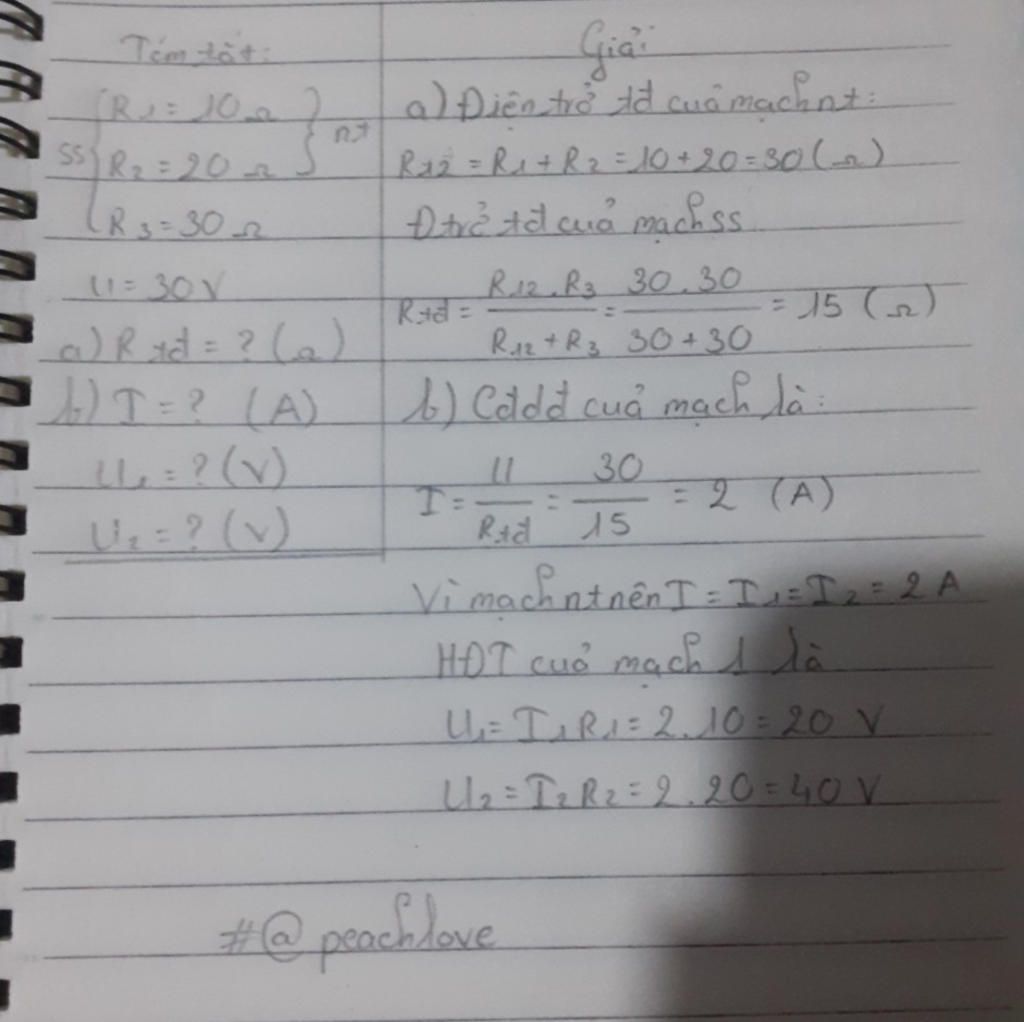 Tóm tắt:
R1 = 10 Ω
nt
SS
R2 = 20 Ω
R3 = 30 Ω
U = 30 V
a) Rtđ = ? (Ω)
b) I = ? (A)
U1 = ? (V)
U2 = ? (V)
Giải
a) Điện trở tđ cuả mạch nt:
R12 = R1 + R2 = 10 + 20 = 30 (Ω)
Đtrở tđ cuả mạch SS
Rtđ = R12 . R3 / R12 + R3 = 30 . 30 / 30 + 30 = 15 (Ω)
b) Cđdđ cuả mạch là:
I = U / Rtđ = 30 / 15 = 2 (A)
Vì mạch nt nên I = I1 = I2 = 2 A
HĐT cuả mạch 1 là
U1 = I1 R1 = 2 . 10 = 20 V
U2 = I2 R2 = 2 . 20 = 40 V
#@ peachlove